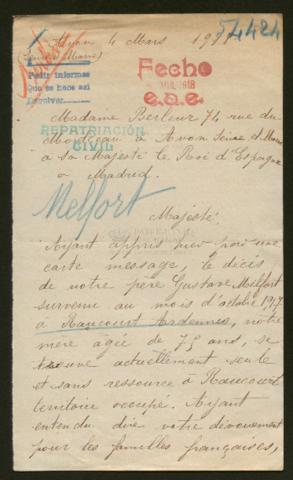 Avon 4 Mars 191
54424
(Seine et Marne)
Pedir informes
Que se hace así
Devolver
Fecho
MAR. 1918
e.a.e.
Madame Berleur 74 rue du
Montceau à Avon Seine et Marne
à sa Majesté le Roi d'Espagne
à Madrid.
REPATRIACIÓN
CIVIL
Melfort
Majesté
Ayant appris par une
carte message, le décès
de notre père Gustave Melfort
survenu au mois d'octobre 1917
à Raucourt Ardennes, notre
mère agée de 75 ans, se
trouve actuellement seule
et sans ressource à Raucourt
territoire occupé. Ayant
entendu dire votre dévouement
pour les familles françaises,